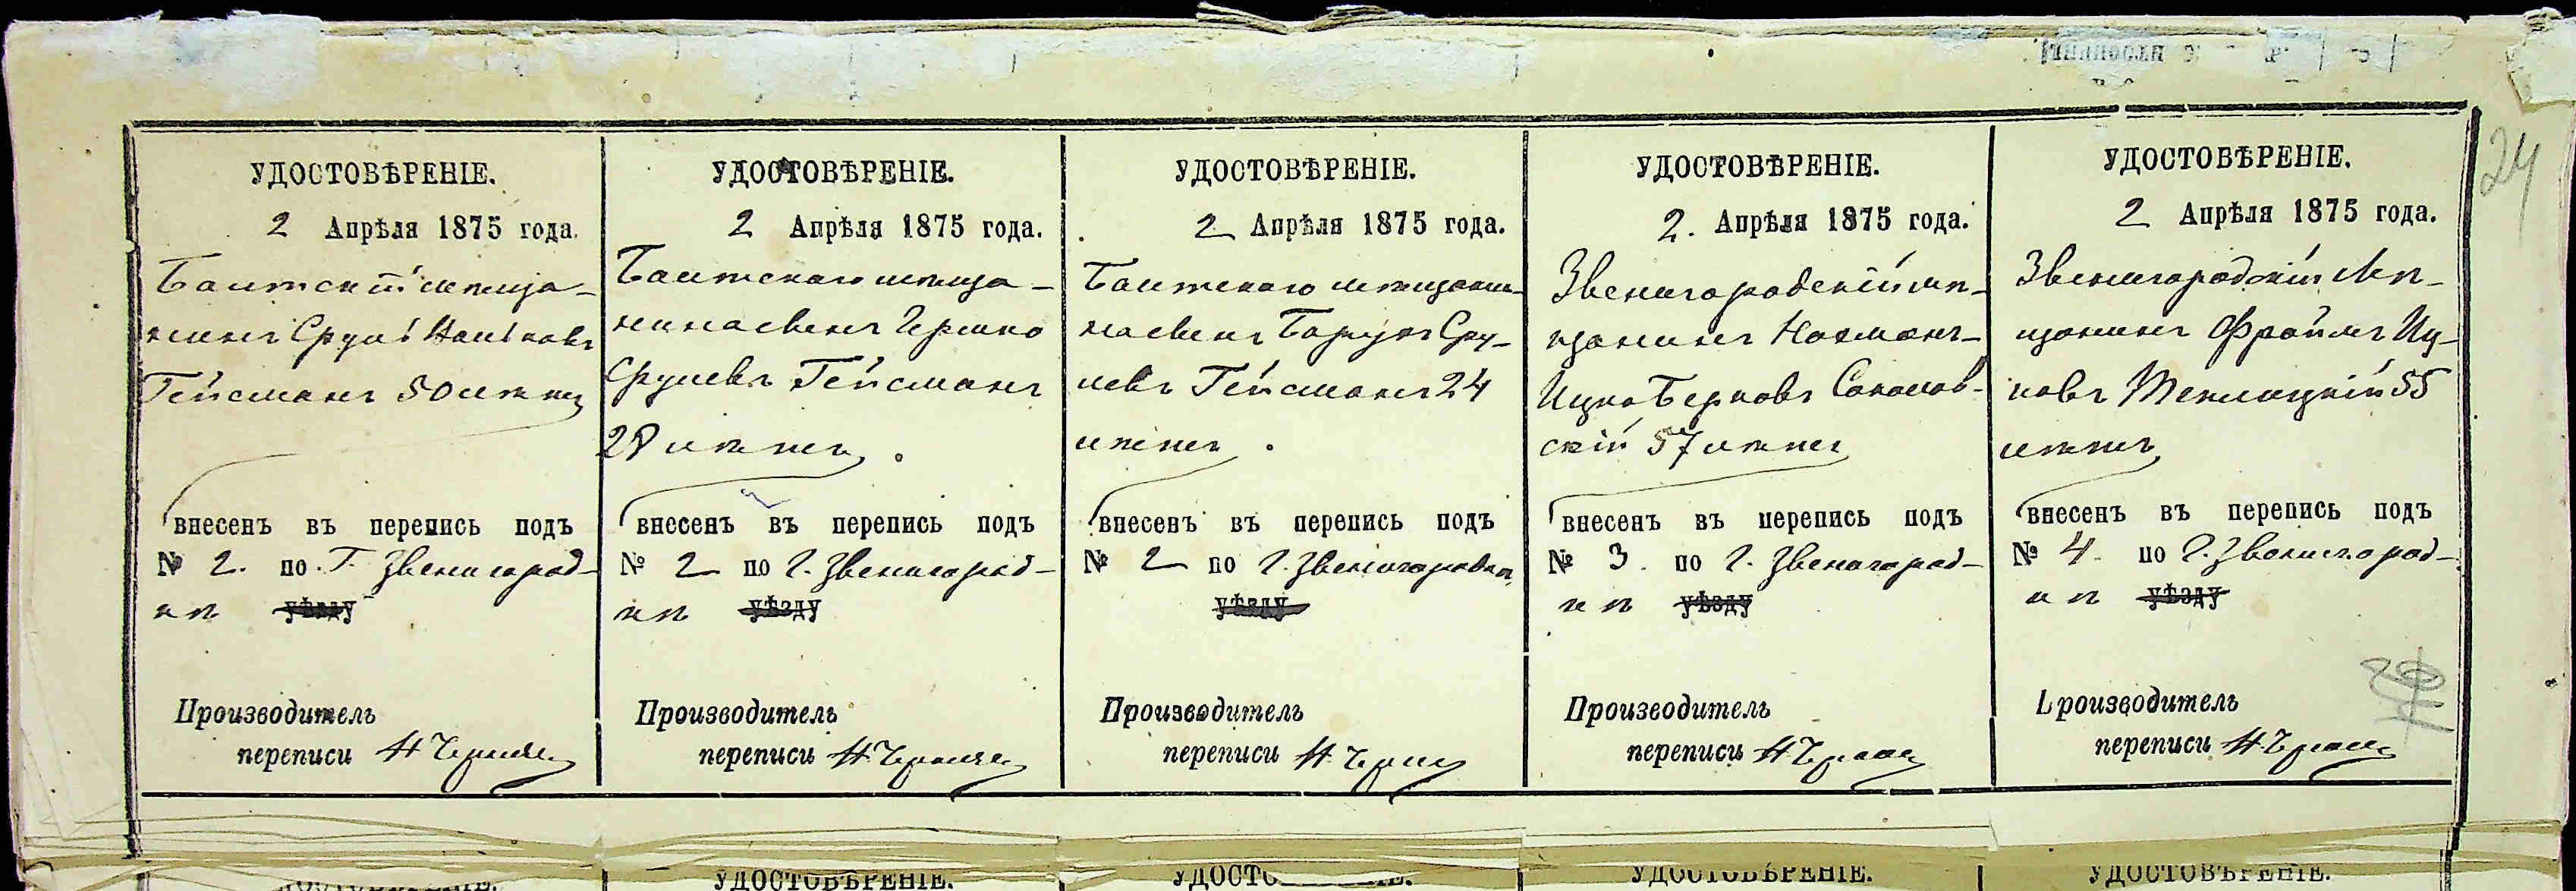 24
УДОСТОВѢРЕНІЕ.
2 Апрѣля 1875 года.
Балтскій мѣща-
нинъ Сруль
Гейсманъ 50 лѣтъ
внесенъ въ перепись подъ
№ 2. по Г. Звенигород-
кѣ уѣзду
Производитель
переписи Н.
УДОСТОВѢРЕНІЕ.
2 Апрѣля 1875 года.
Балтскаго мѣща-
нина сынъ Гершко
Срулевъ Гейсманъ
28 лѣтъ.
внесенъ въ перепись подъ
№ 2 по Г. Звенигород-
кѣ уѣзду
Производитель
переписи Н.
УДОСТОВѢРЕНІЕ.
2 Апрѣля 1875 года.
Балтскаго мѣщани-
на сынъ Борухъ Сру-
левъ Гейсманъ 24
лѣтъ.
внесенъ въ перепись подъ
№ 2 по Г. Звенигородкѣ
уѣзду
Производитель
переписи Н.
УДОСТОВѢРЕНІЕ.
2. Апрѣля 1875 года.
Звенигородскій мѣ-
щанинъ Нахманъ-
Ицко Берковъ Соколов-
скій 57 лѣтъ
внесенъ въ перепись подъ
№ 3. по Г. Звенигород-
кѣ уѣзду
Производитель
переписи Н.
УДОСТОВѢРЕНІЕ.
2 Апрѣля 1875 года.
Звенигородскій мѣ-
щанинъ Фроимъ Иц-
ковъ Теплицкій 55
лѣтъ
внесенъ въ перепись подъ
№ 4. по Г. Звенигород-
кѣ уѣзду
Производитель
переписи Н.
УДОСТОВѢРЕНІЕ.
УДОСТОВѢРЕНІЕ.
УДОСТОВѢРЕНІЕ.